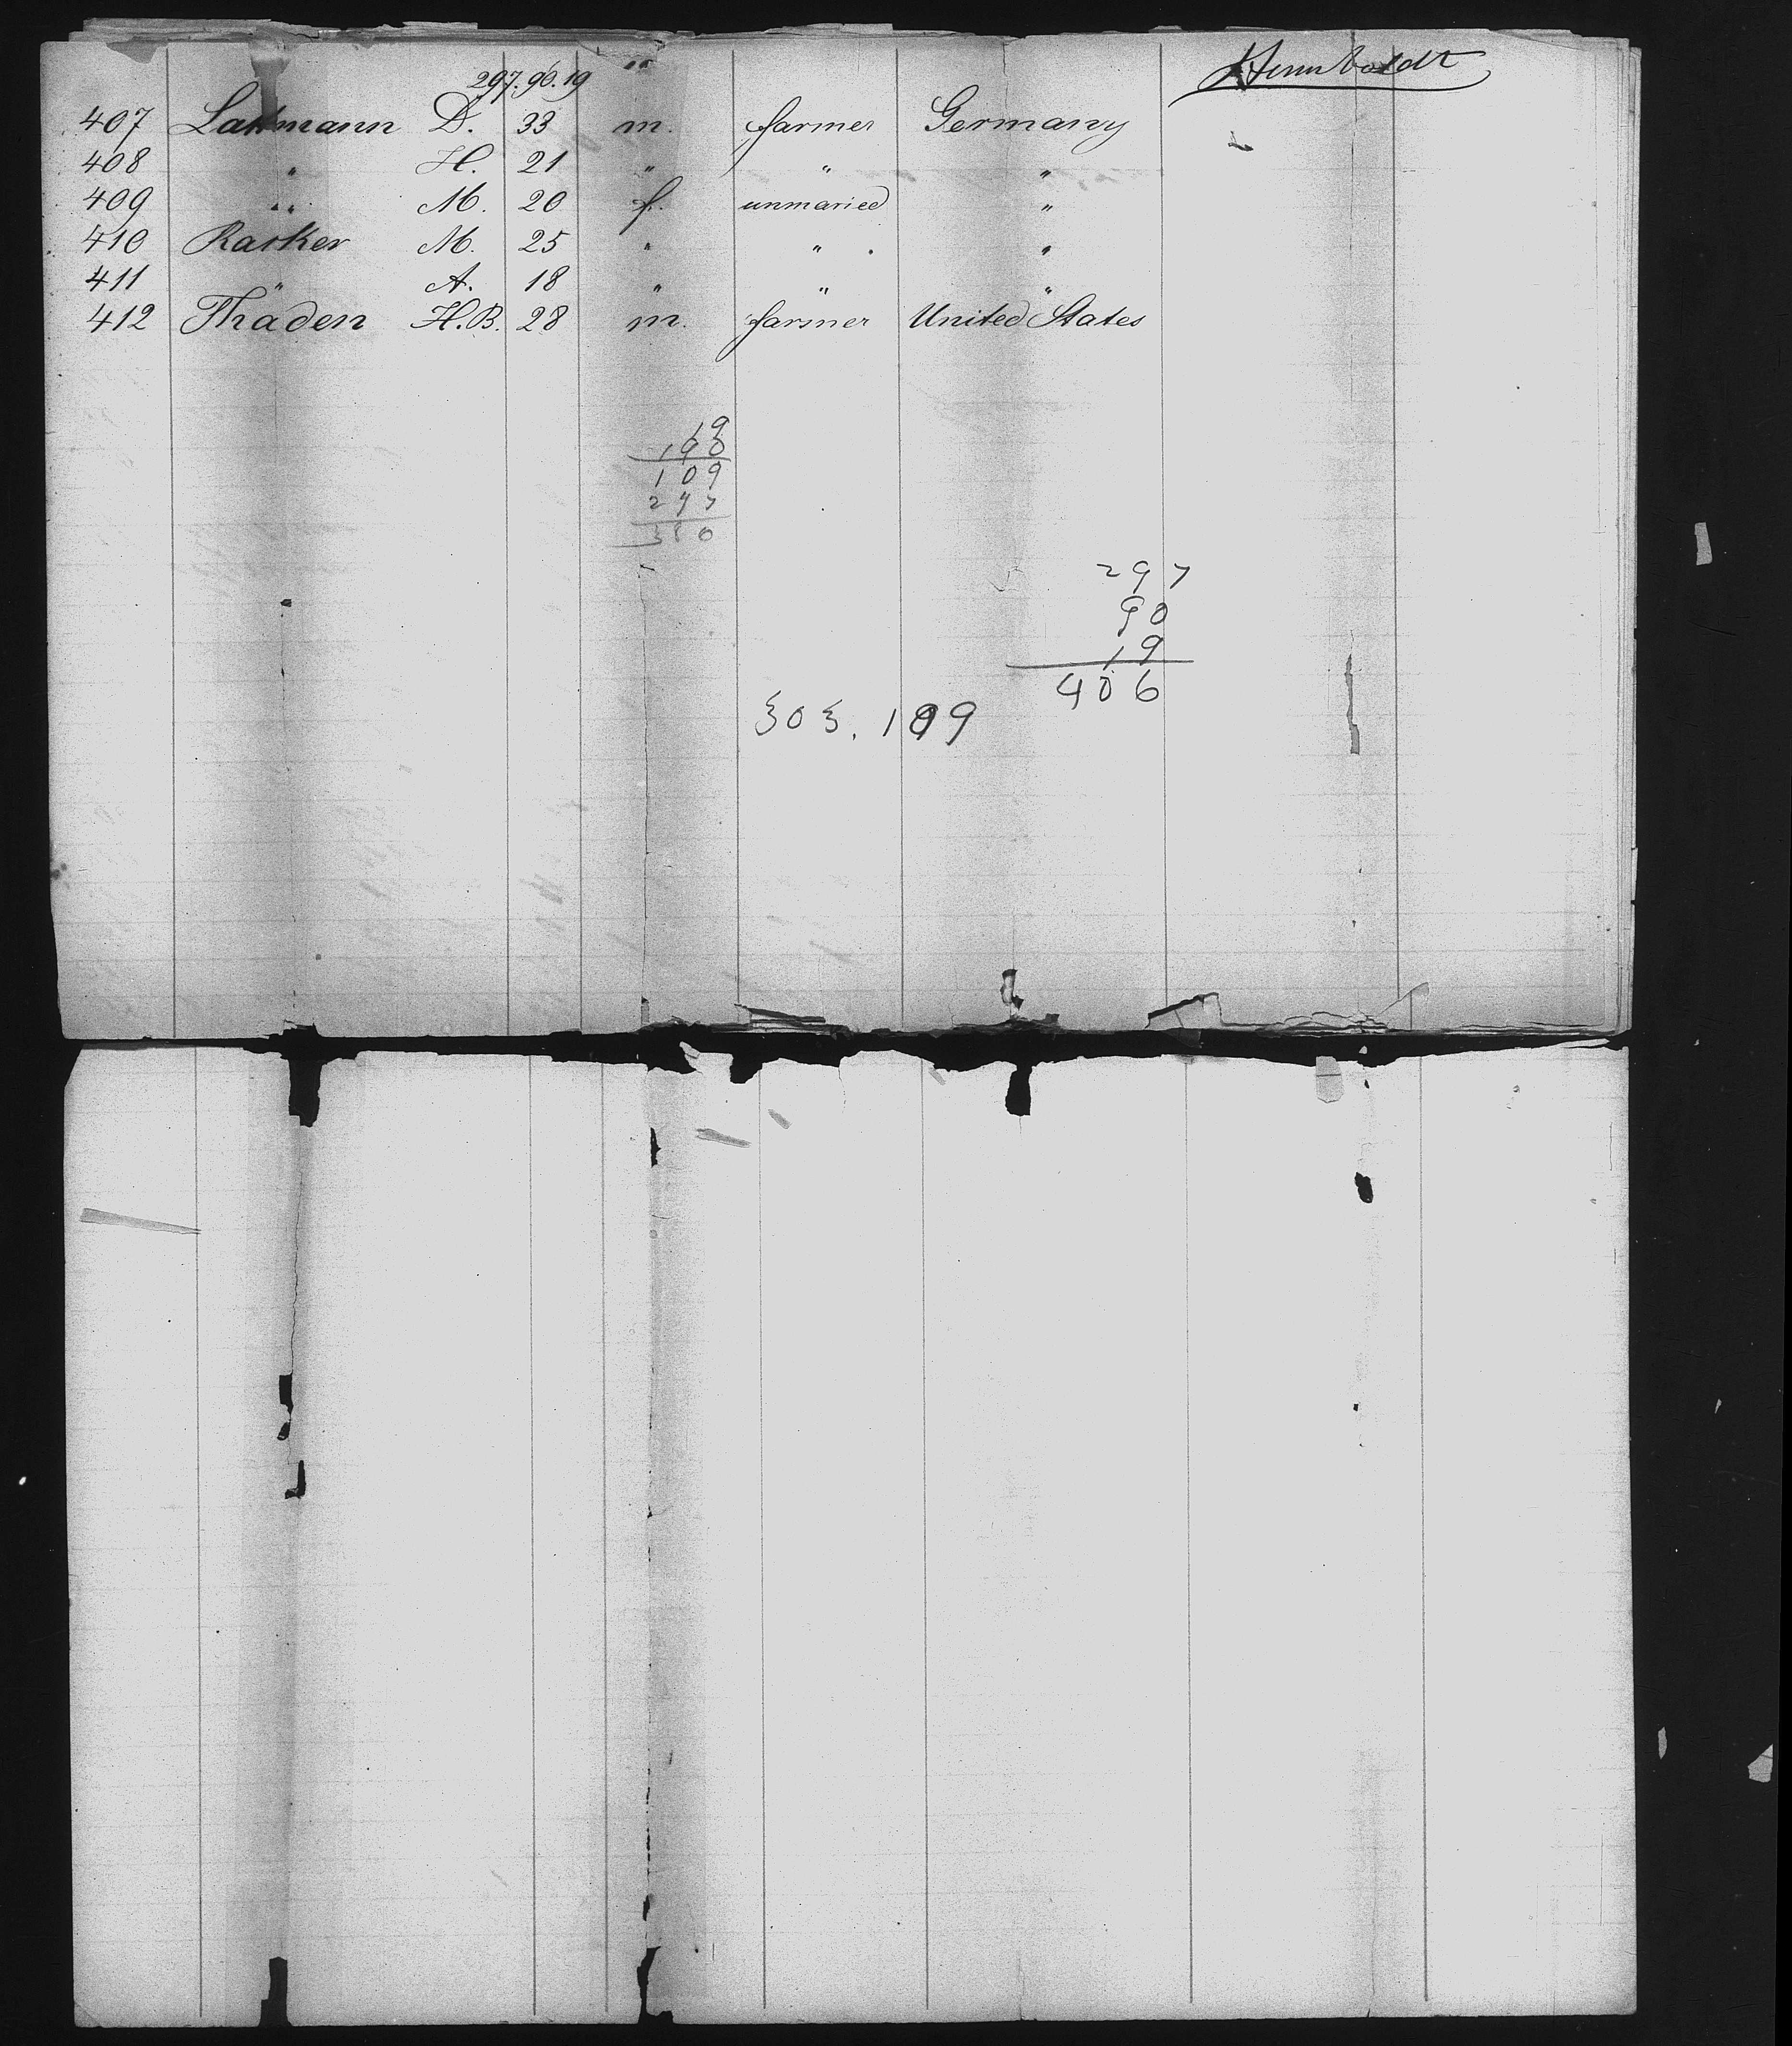 Humboldt
297. 90. 19 "
407 Lahmann D. 33 m. farmer Germany
408 " H. 21 " " "
409 " M. 20 f. unmaried "
410 Racker M. 25 " " "
411 " A. 18 " " "
412 Thaden H.B. 28 m. farmer United States
19
190
109
297
297
90
19
406
303. 109